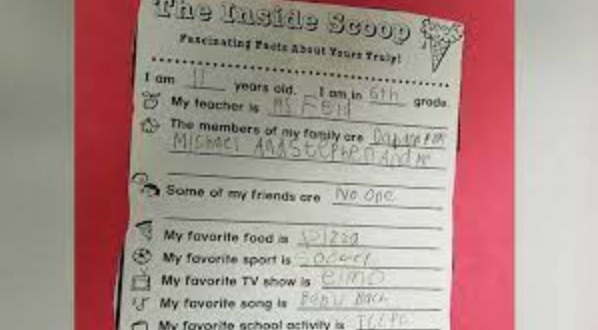 The Inside Scoop
Fascinating Facts About Yours Truly!
I am 11 years old. I am in 6th grade.
My teacher is Ms Feld
The members of my family are
Michael And Stephen And Me
Some of my friends are No one
My favorite food is Pizza
My favorite sport is Soccer
My favorite TV show is elmo
My favorite song is
My favorite school activity is